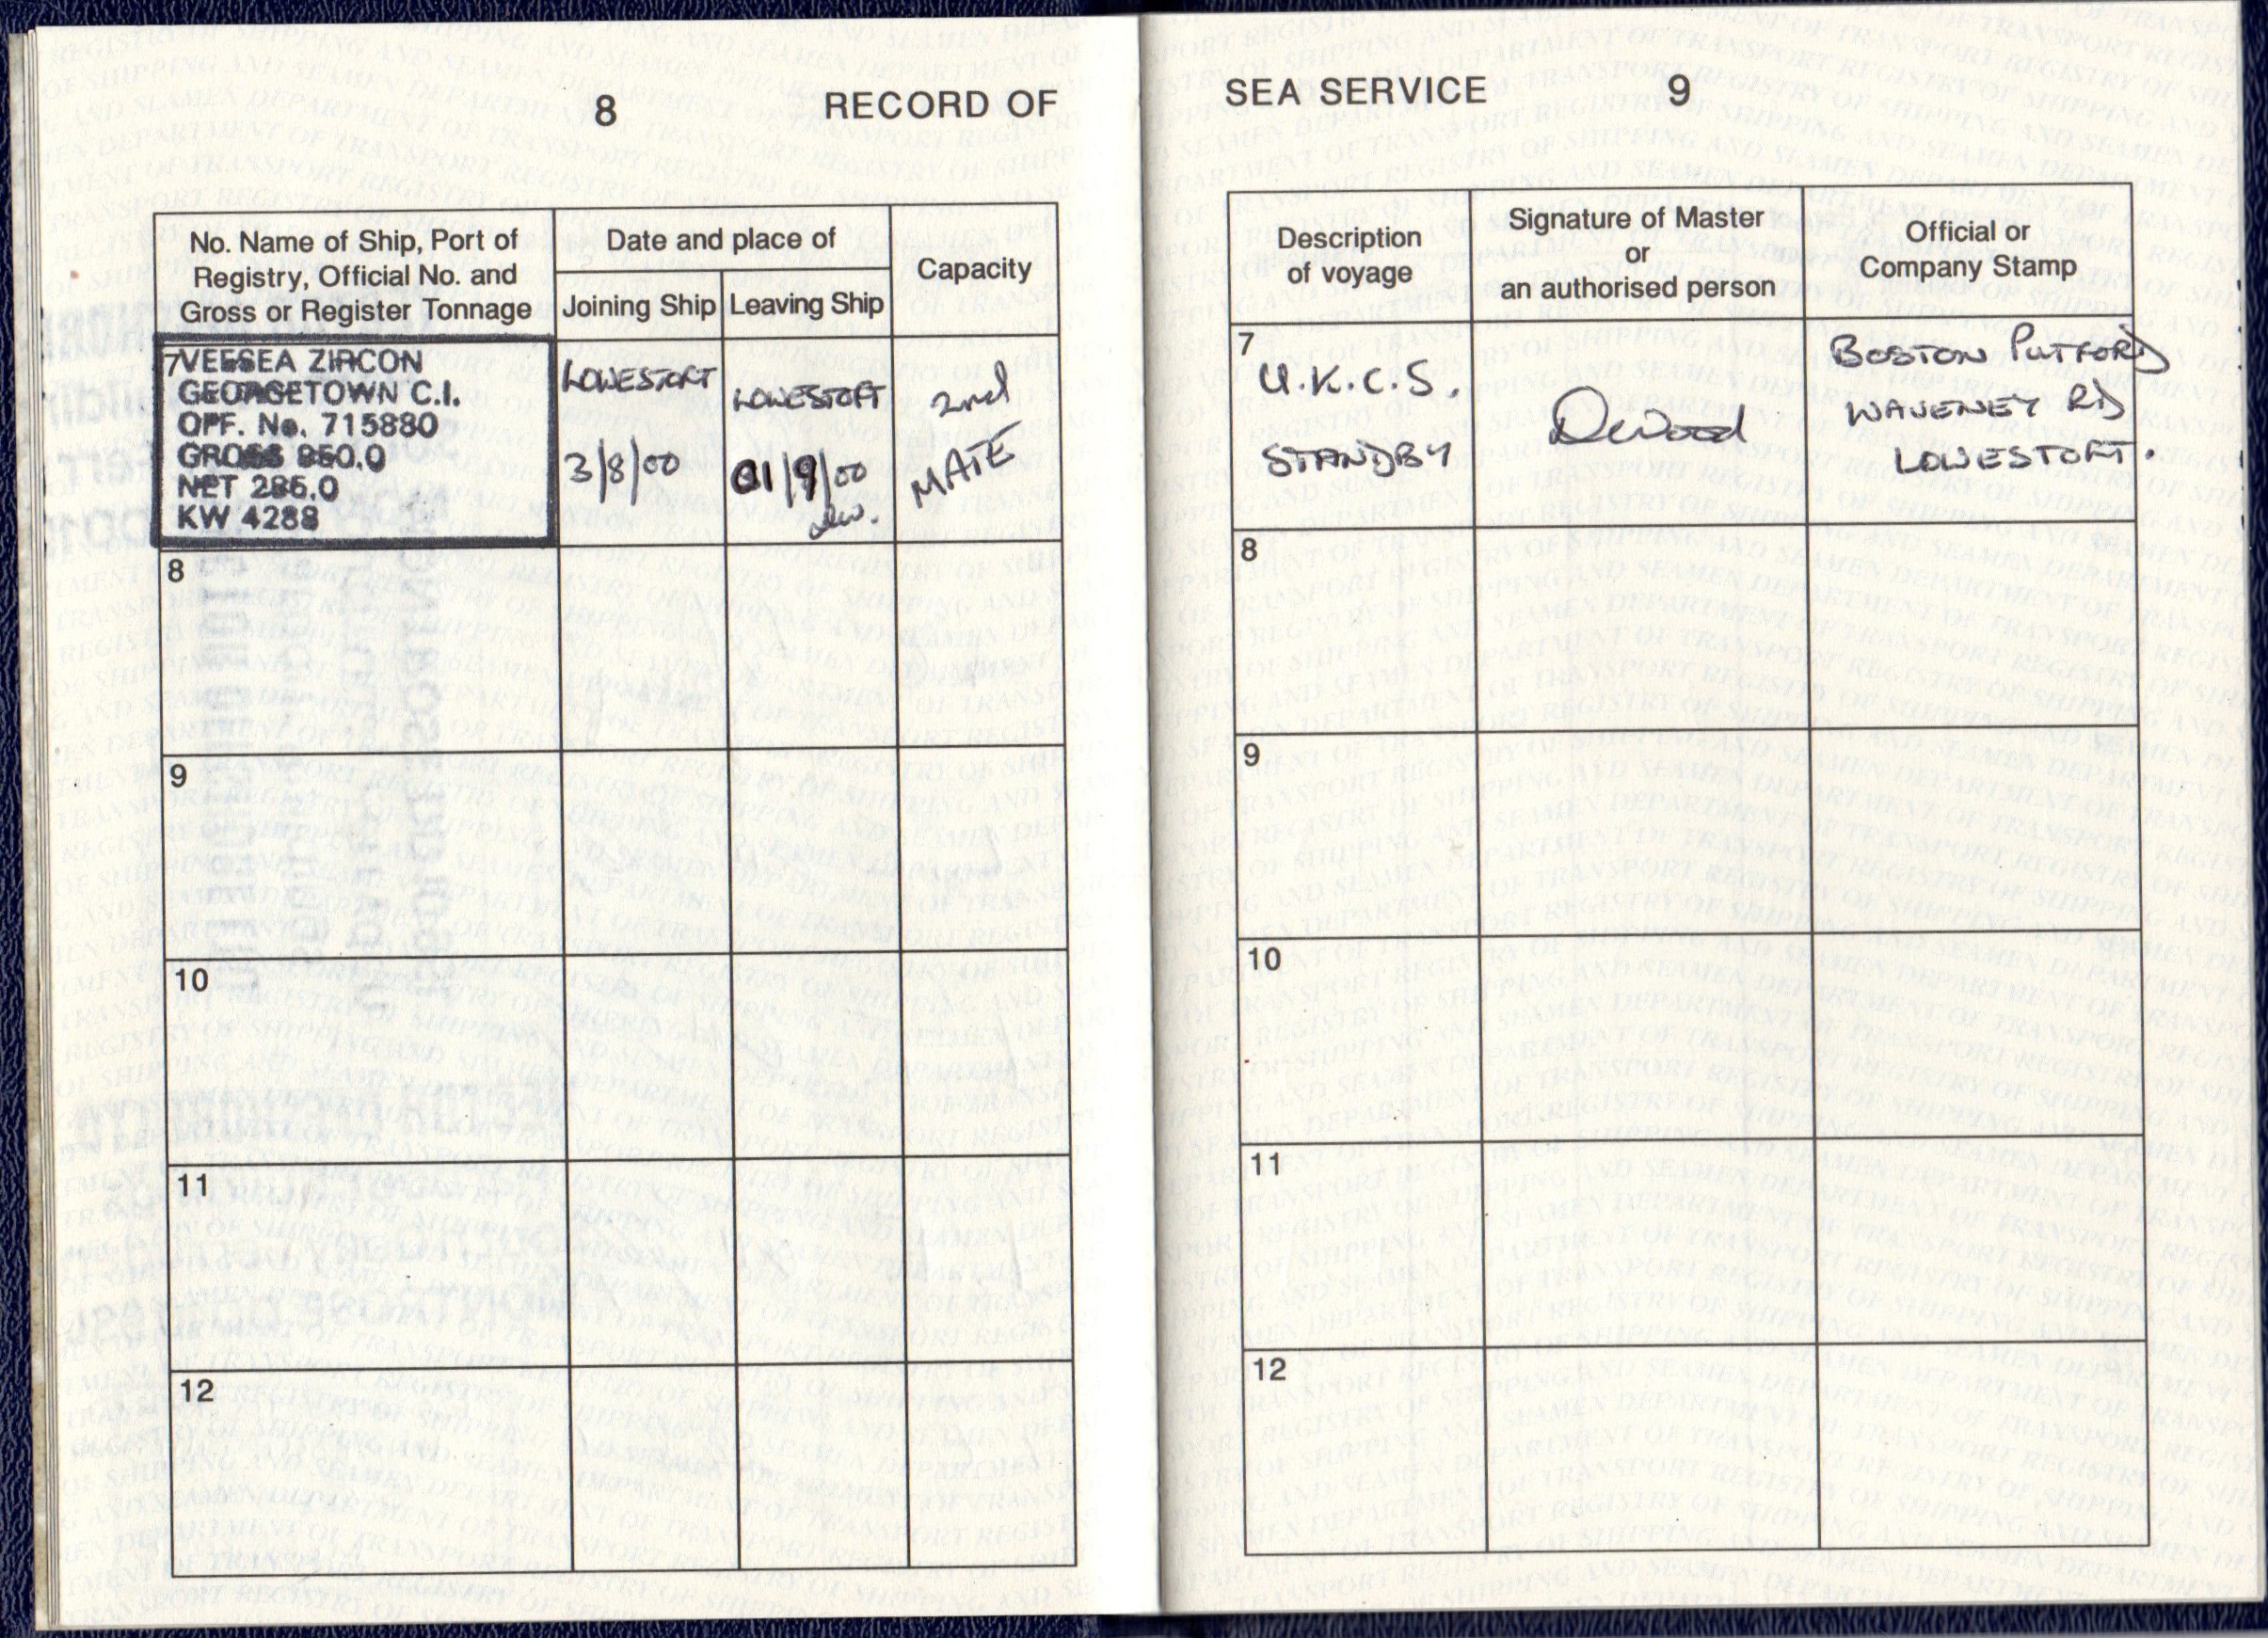 8
RECORD OF
No. Name of Ship, Port of
Registry, Official No. and
Gross or Register Tonnage
Date and place of
Joining Ship
Leaving Ship
Capacity
7
VEESEA ZIRCON
GEORGETOWN C.I.
OFF. No. 715880
GROSS 950.0
NET 285.0
KW 4288
LOWESTOFT
3/8/00
LOWESTOFT
01/9/00
2nd
MATE
8
9
10
11
12
SEA SERVICE
9
Description
of voyage
Signature of Master
or
an authorised person
Official or
Company Stamp
7
U.K.C.S.
STANDBY
DWood
BOSTON PUTFORD
WAVENEY RD
LOWESTOFT.
8
9
10
11
12